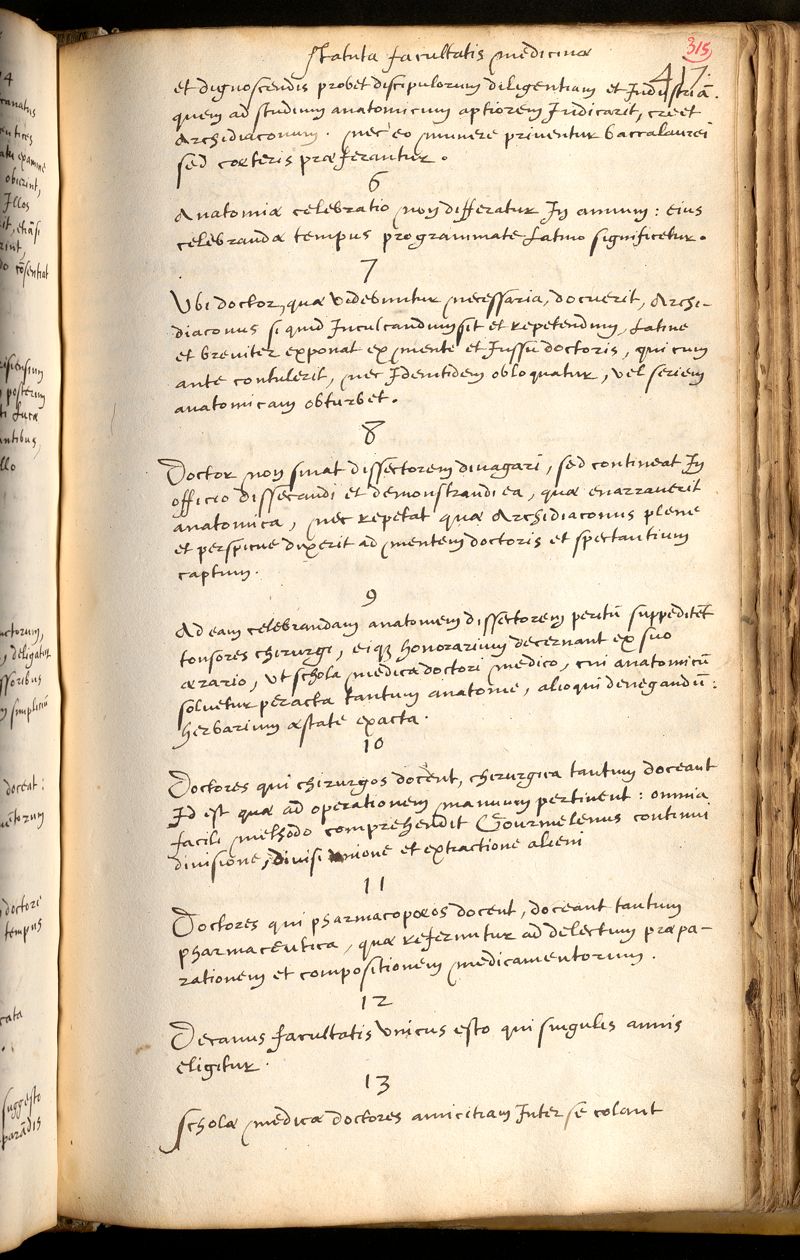 315
417
statuta facultatis medicinæ
et dignoscendis probet discipulorum diligentiam et Industriā.
quem ad studium anatomicum aptiorem Iudicarit, creet
Archidiaconum. nec eo munere priventur baccalaurei
sed cæteris præferantur.
6
Anatomiæ celebratio non differatur In annum: eius
celebrandæ tempus programmate Latino significetur.
7
Vbi doctor, quæ videbuntur necessaria, docuerit, Archi-
diaconus si quid Inculcandum sit et repetendum, Latine
et breviter exponat ex mente et Iussu doctoris, qui cum
ante contulerit, nec Identidem obloquatur, vel seriem
anatomicam obturbet.
8
Doctor non sinat dissectorem divagari, sed contineat In
officio dissecandi et demonstrandi ea, quæ enarraverit
anatomica, nec repetat quæ Archidiaconus plene
et perspicue dixerit ad mentem doctoris et spectantium
captum.
9
Ad eam celebrandam anatomem dissectorem peritū suppeditēt
tonsores chirurgi, eiqꝫ honorarium decernant ex suo
ærario, vt schola medica doctori medico, cui anatomicū
soluetur peracta tantum anatome, alioqui denegandū:
herbarium æstate exacta.
10
Doctores qui chirurgos docent, chirurgica tantum doceant
Id est quæ ad operationem manuum pertinent: omnia
facili methodo comprehendit Gourmelenus continui
divisione, divisi unione et extractione alieni
11
Doctores qui pharmacopœos docent, doceant tantum
pharmaceutica, quæ referuntur ad delectum præpa-
rationem et compositionem medicamentorum.
12
Decanus facultatis vnicus esto qui singulis annis
eligitur.
13
scholæ medicæ doctores amicitiam Inter se colant